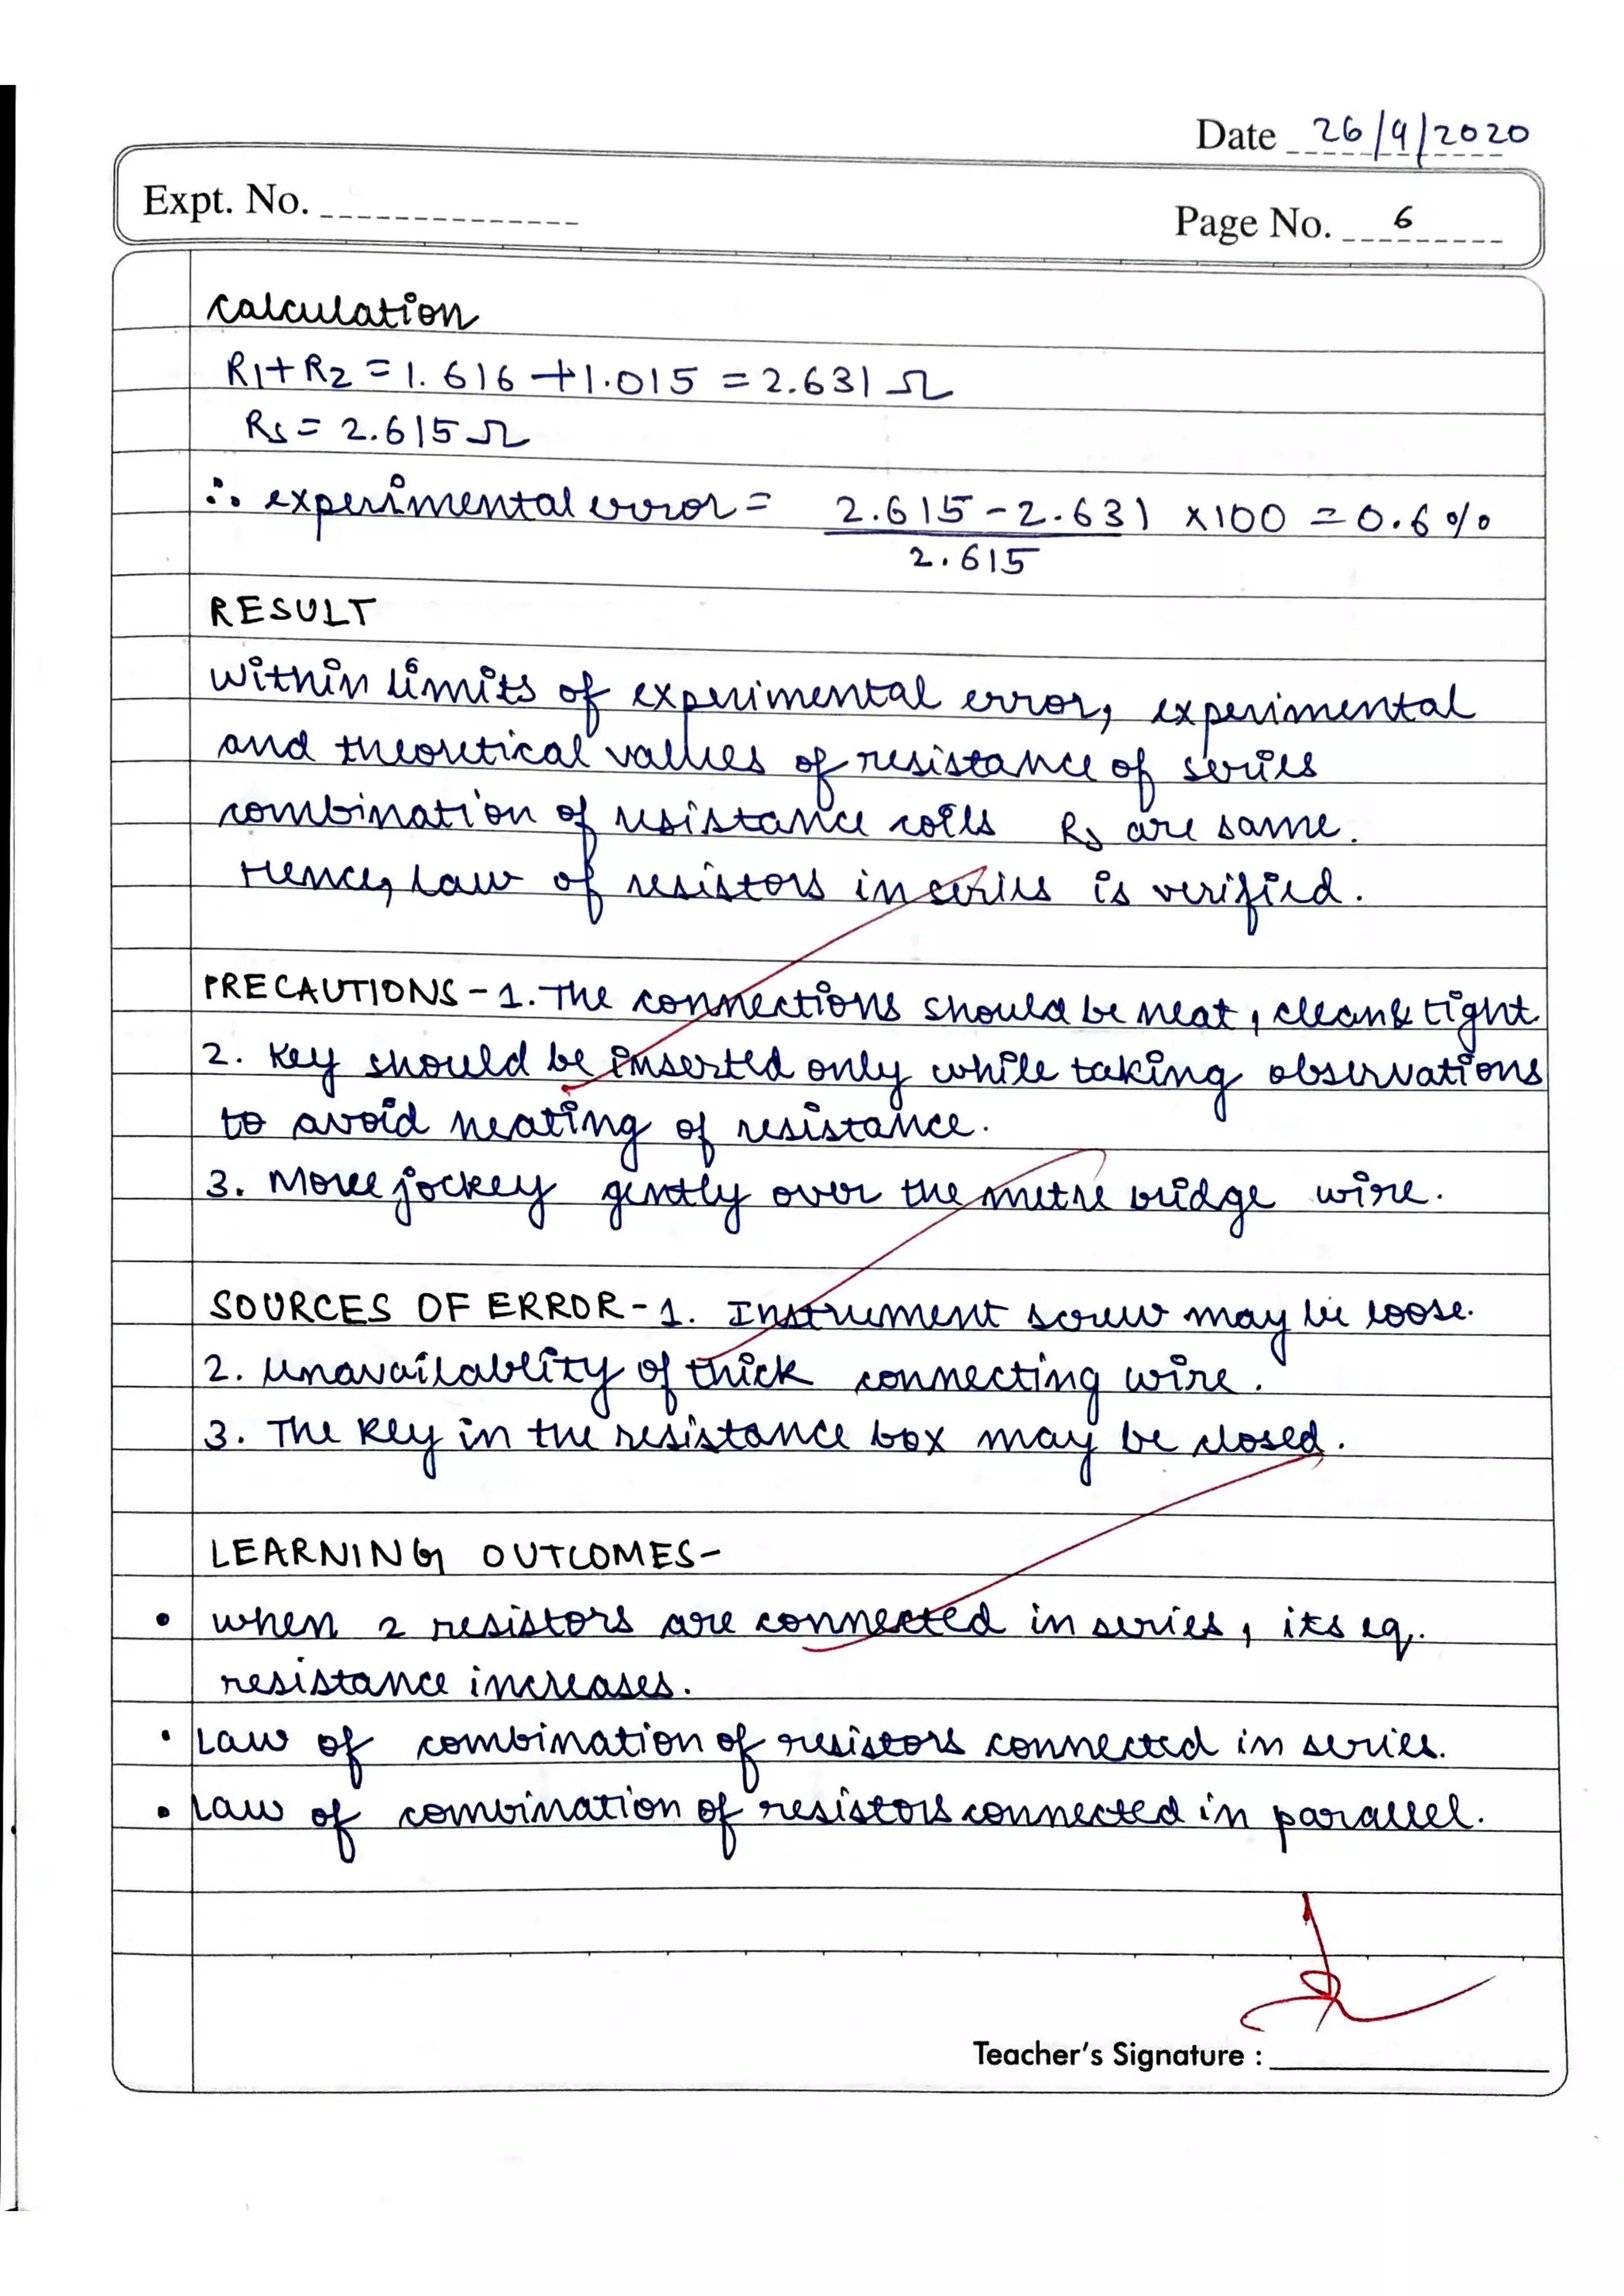 Date 26/9/2020
Expt. No.
Page No. 6
Calculation
R1+R2 = 1.616 + 1.015 = 2.631 Ω
Rs = 2.615 Ω
∴ experimental error = 2.615 - 2.631 x 100 = 0.6 %
2.615
RESULT
Within limits of experimental error, experimental
and theoretical values of resistance of series
combination of resistance coils Rs are same.
Hence, Law of resistors in series is verified.
PRECAUTIONS - 1. The connections should be neat, clean & tight
2. Key should be inserted only while taking observations
to avoid heating of resistance.
3. Move jockey gently over the metre bridge wire.
SOURCES OF ERROR - 1. Instrument screw may be loose.
2. Unavailablity of thick connecting wire.
3. The key in the resistance box may be closed.
LEARNING OUTCOMES -
• when 2 resistors are connected in series, its eq.
resistance increases.
• Law of combination of resistors connected in series.
• Law of combination of resistors connected in parallel.
Teacher's Signature :